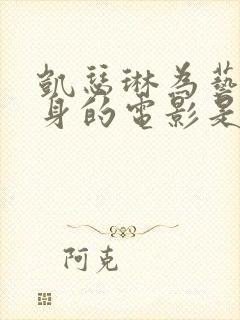 凱瑟琳為藝
身的電影是
阿克